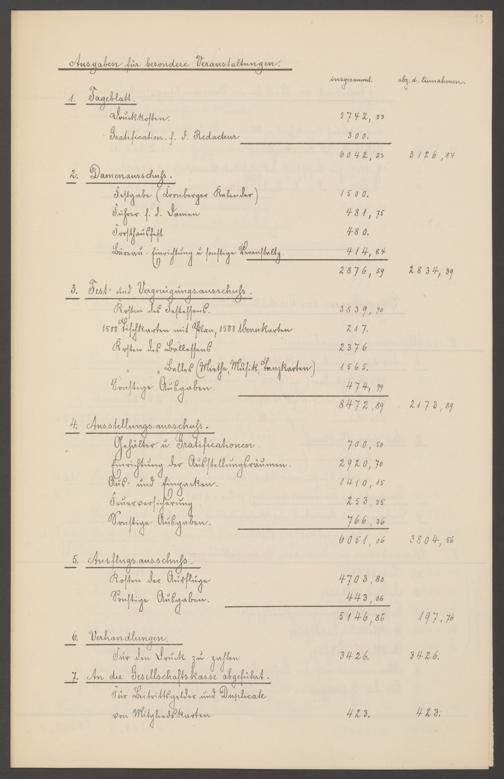 73
Ausgaben für besondere Veranstaltungen.
insgesammt. abz. d. Einnahmen.
1. Tageblatt.
Druckkosten. 5742,23
Gratification f. d. Redacteur 300.
6042,23 3126,84
2. Damenausschuss.
Festgabe (Cronberger Kalender) 1500.
Führer f. d. Damen 481,75
Forsthausfest 480.
Büreau-Einrichtung u sonstige Veranstaltg. 414,84
2876,59 2834,39
3. Fest- und Vergnügungsausschuss.
Kosten des Festessens. 3839,90
1500 Tischkarten mit Plan, 1500 Menukarten 217.
Kosten des Ballessens 2376
" " Balles (Miethe, Musik, Tanzkarten) 1565.
Sonstige Ausgaben. 474,99
8472,89 2173,89
4. Ausstellungsausschuss.
Gehälter u Gratificationen 700,50
Einrichtung der Ausstellungsräumen. 2920,70
Aus- und Einpacken. 1410,15
Feuerversicherung 253,35
Sonstige Ausgaben. 766,36
6051,06 3804,56
5. Ausflugsausschuss.
Kosten der Ausflüge 4703,80
Sonstige Ausgaben. 443,06
5146,86 197,76
6. Verhandlungen.
Für den Druck zu zahlen 3426. 3426.
7. An die Gesellschaftskasse abgeführt.
Für Beitrittsgelder und Duplicate
von Mitgliedskarten 423. 423.